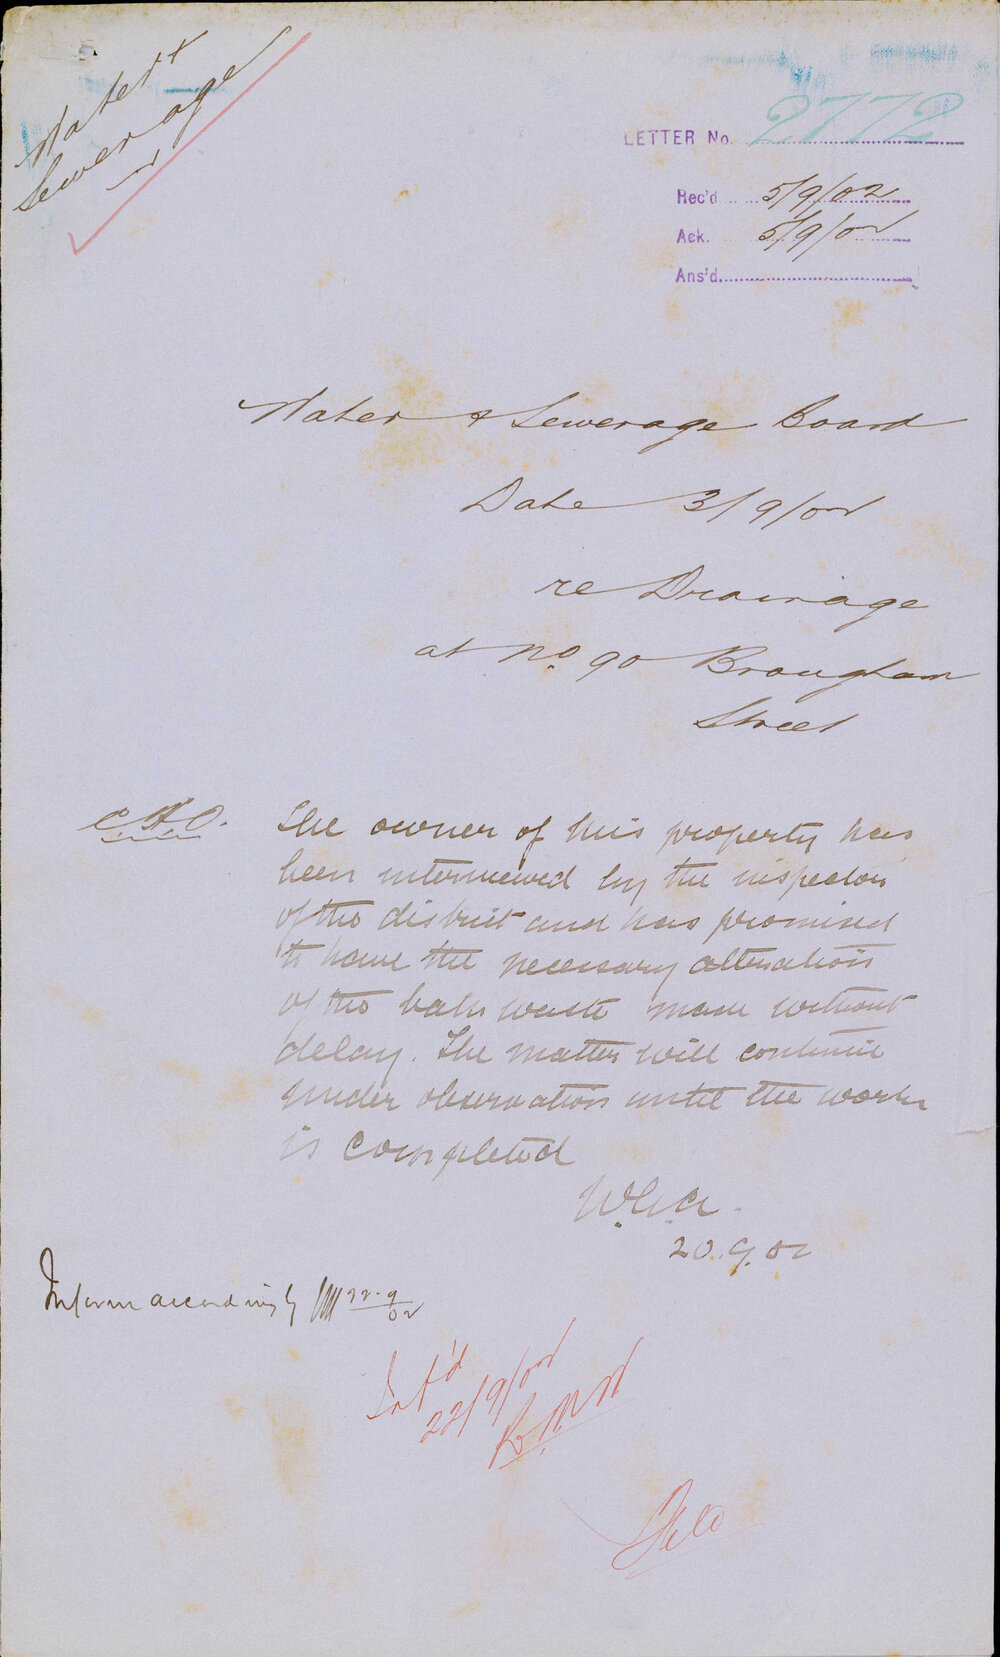 Water &
Sewerage
LETTER No. 2772
Rec'd 5/9/02
Ack. 5/9/02
Ans'd.
Water & Sewerage Board
Date 3/9/02
re Drainage
at No 90 Brougham
Street
C.H.O.
The owner of this property has
been interviewed by the inspector
of the district and has promised
to have the necessary alteration
of the bath waste made without
delay. The matter will continue
under observation until the work
is completed
20.9.02
Inform accordingly 22.9/02
Inf'd
22/9/02
File